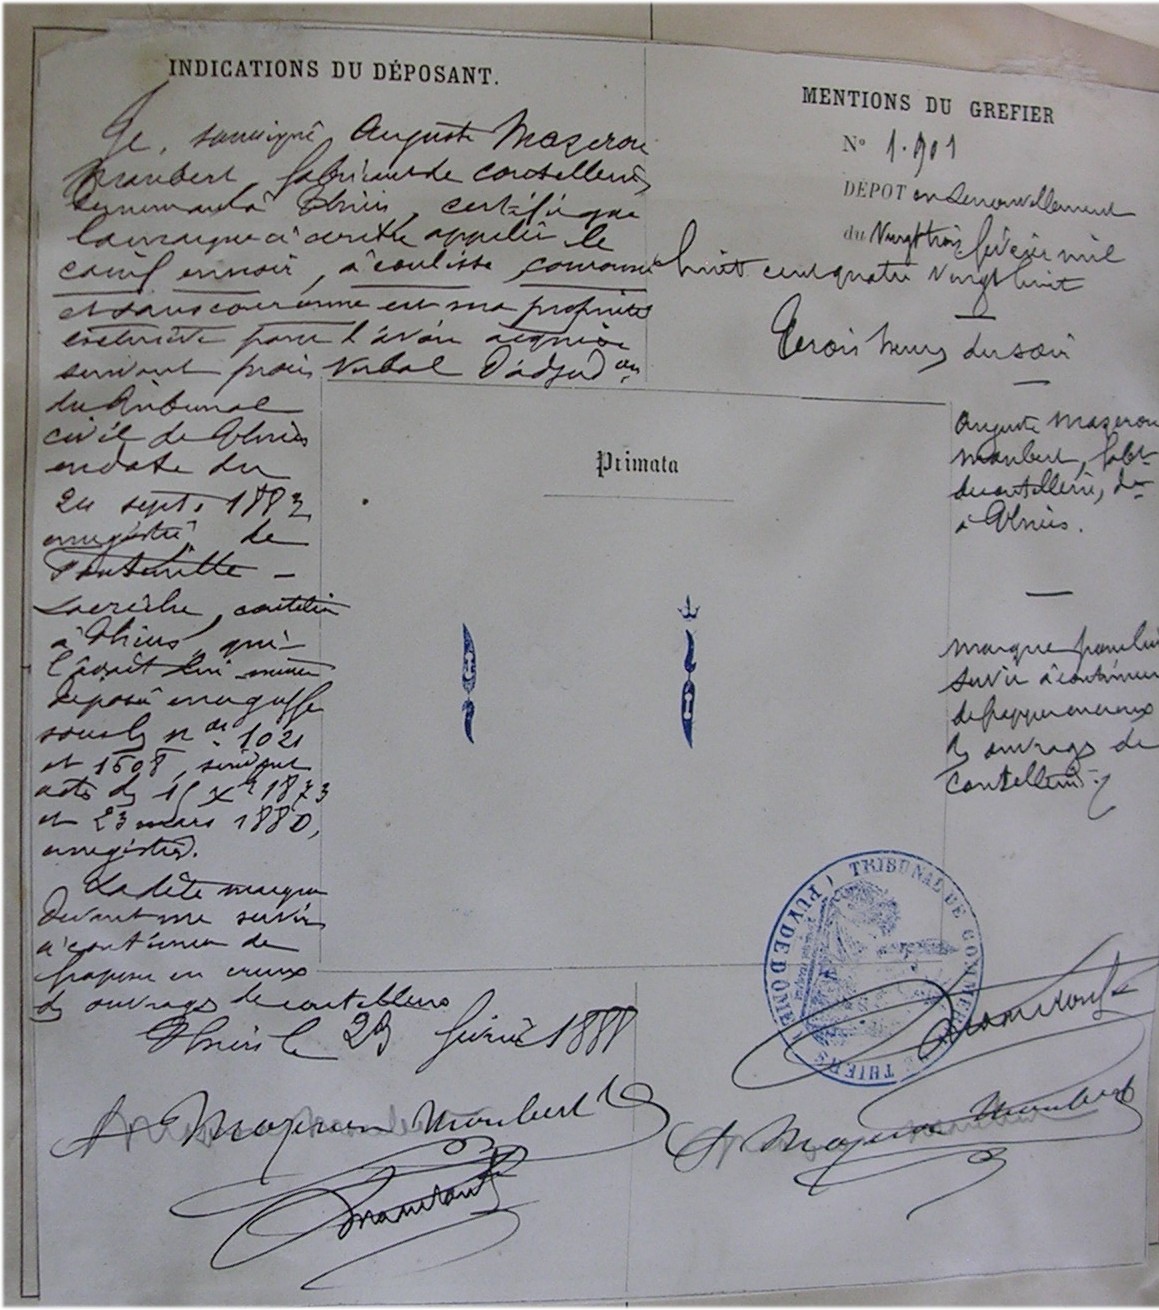 INDICATIONS DU DÉPOSANT.
Je, soussigné, Auguste Mazeron
Maubert, fabricant de coutellerie,
demeurant à Thiers, certifie que
la marque ci contre appelée le
canif en noir, à coulisse couronné
et sans couronne est ma propriété
exclusive pour l'avoir acquise
suivant procès Verbal D'adjud on
du Tribunal
civil de Thiers
en date du
24 sept. 1883
enregistré de
coutelier
à Thiers, qui
l'avait lui même
déposé au greffe
sous les nos 1021
et 1608, suivant
actes des 15 Xbre 1873
et 23 mars 1880,
enregistrés.
La dite marque
devant me servir
à continuer de
frapper en creux
des ouvrages de coutellerie
Thiers le 23 février 1888
A Mazeron Maubert
MENTIONS DU GREFIER
N° 1.901
DÉPOT en renouvellement
du Vingt trois février mil
huit cent quatre vingt huit
trois heures du soir
Primata
Auguste Mazeron
Maubert, fabt
de coutellerie, dt
à Thiers.
marque pour lui
servir à continuer
de frapper en creux
des ouvrages de
coutellerie.
TRIBUNAL DE COMMERCE DE THIERS (PUY DE DOME)
A Mazeron Maubert